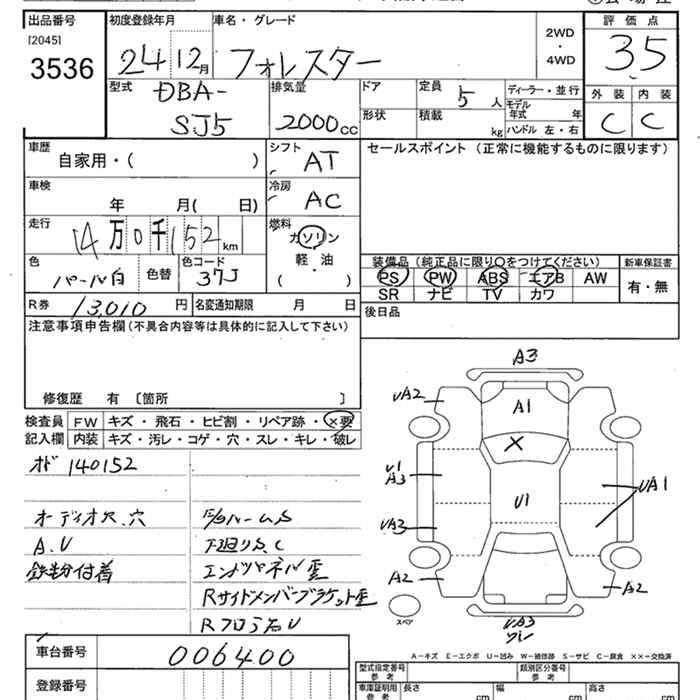 出品番号 初度登録年月 車名・グレード 評価点
[2045] 2WD
3536 24 12月 フォレスター ・ 3.5
4WD
型式 排気量 ドア 定員 ディーラー・並行 外装 内装
DBA- 5人 モデル年式 年
SJ5 2000cc 形状 積載 kg ハンドル 左・右 C C
車歴 シフト セールスポイント (正常に機能するものに限ります)
自家用・( ) AT
車検 冷房
年 月( 日) AC
走行 燃料
14万0千152km ガソリン
軽・油
( )
色 色替 色コード 装備品 (純正品に限り○をつけてください) 新車保証書
パール白 37J PS PW ABS エアB AW 有・無
SR ナビ TV カワ
R券 13,010円 名変通知期限 月 日 後日品
注意事項申告欄(不具合内容等は具体的に記入して下さい)
修復歴 有 〔箇所 〕
検査員 FW キズ・飛石・ヒビ割・リペア跡・×要
記入欄 内装 キズ・汚レ・コゲ・穴・スレ・キレ・破レ
オド 140152
オーディオ欠、穴
A.U 下廻りS.C
鉄粉付着 エンドパネル歪
Rサイドメンバーブラケット歪
Rフロア右U
A3
UA2
A1
X
U1
A3
UA1
U1
UA3
A2
A2
スペア
UA3
ワレ
A−キズ E−エクボ U−凹み W−補修跡 S−サビ C−腐食 ××−交換済
車台番号 006400
登録番号
型式指定番号 参考 類別区分番号 参考
車庫証明用 参考 長さ cm 幅 cm 高さ cm